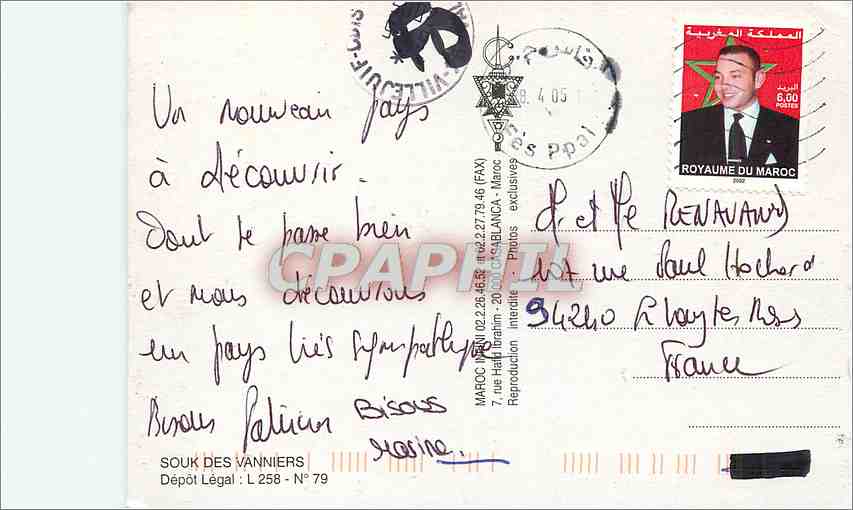 Un nouveau pays
à découvrir.
Tout se passe bien
et nous découvrons
un pays très sympathique
Bisous Patricia Bisous
Marine.
SOUK DES VANNIERS
Dépôt Légal : L 258 - N° 79
MAROC 02.2.26.46.52 et 02.2.27.79.46 (FAX)
7, rue Hafid Ibrahim - 20 000 CASABLANCA - Maroc
Reproduction interdite - Photos exclusives
VILLEJUIF
فاس
8. 4 05
Fès Ppal
المملكة المغربية
البريد
6,00
POSTES
ROYAUME DU MAROC
2002
M et Me RENAVAND
107 rue Paul Hochard
94240 L'Hay les Roses
France
CPAPHIL